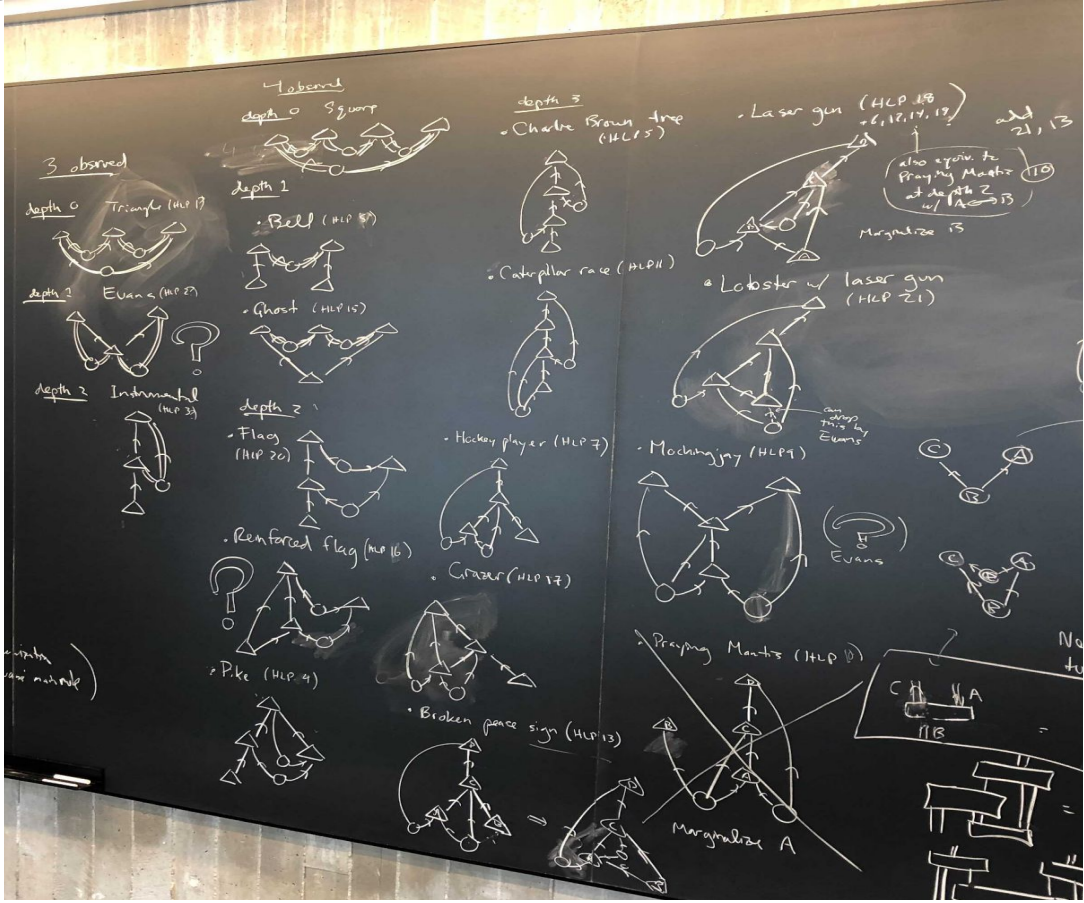 3 observed
depth 0 Triangle (HLP 1)
depth 1 Evans (HLP 2)
?
depth 2 Instrumental
(HLP 3)
4 observed
depth 0 Square
depth 1
• Bell (HLP 8)
• Ghost (HLP 15)
depth 2
• Flag
(HLP 20)
• Reinforced flag (HLP 16)
?
• Pike (HLP 9)
depth 3
• Charlie Brown tree
(HLP 5)
• Caterpillar race (HLP 11)
• Hockey player (HLP 7)
• Grazer (HLP 17)
• Broken peace sign (HLP 13)
⇒
• Laser gun (HLP 18
+6, 12, 14, 19)
add
21, 13
also equiv. to
Praying Mantis
at depth 2
w/ A ↔ B
(10)
Marginalize B
• Lobster w/ laser gun
(HLP 21)
can
drop
this by
Evans
• Mockingjay (HLP 9)
(?)
Evans
• Praying Mantis (HLP
Marginalize A
C A
B
C A
B
C A
B
=
=